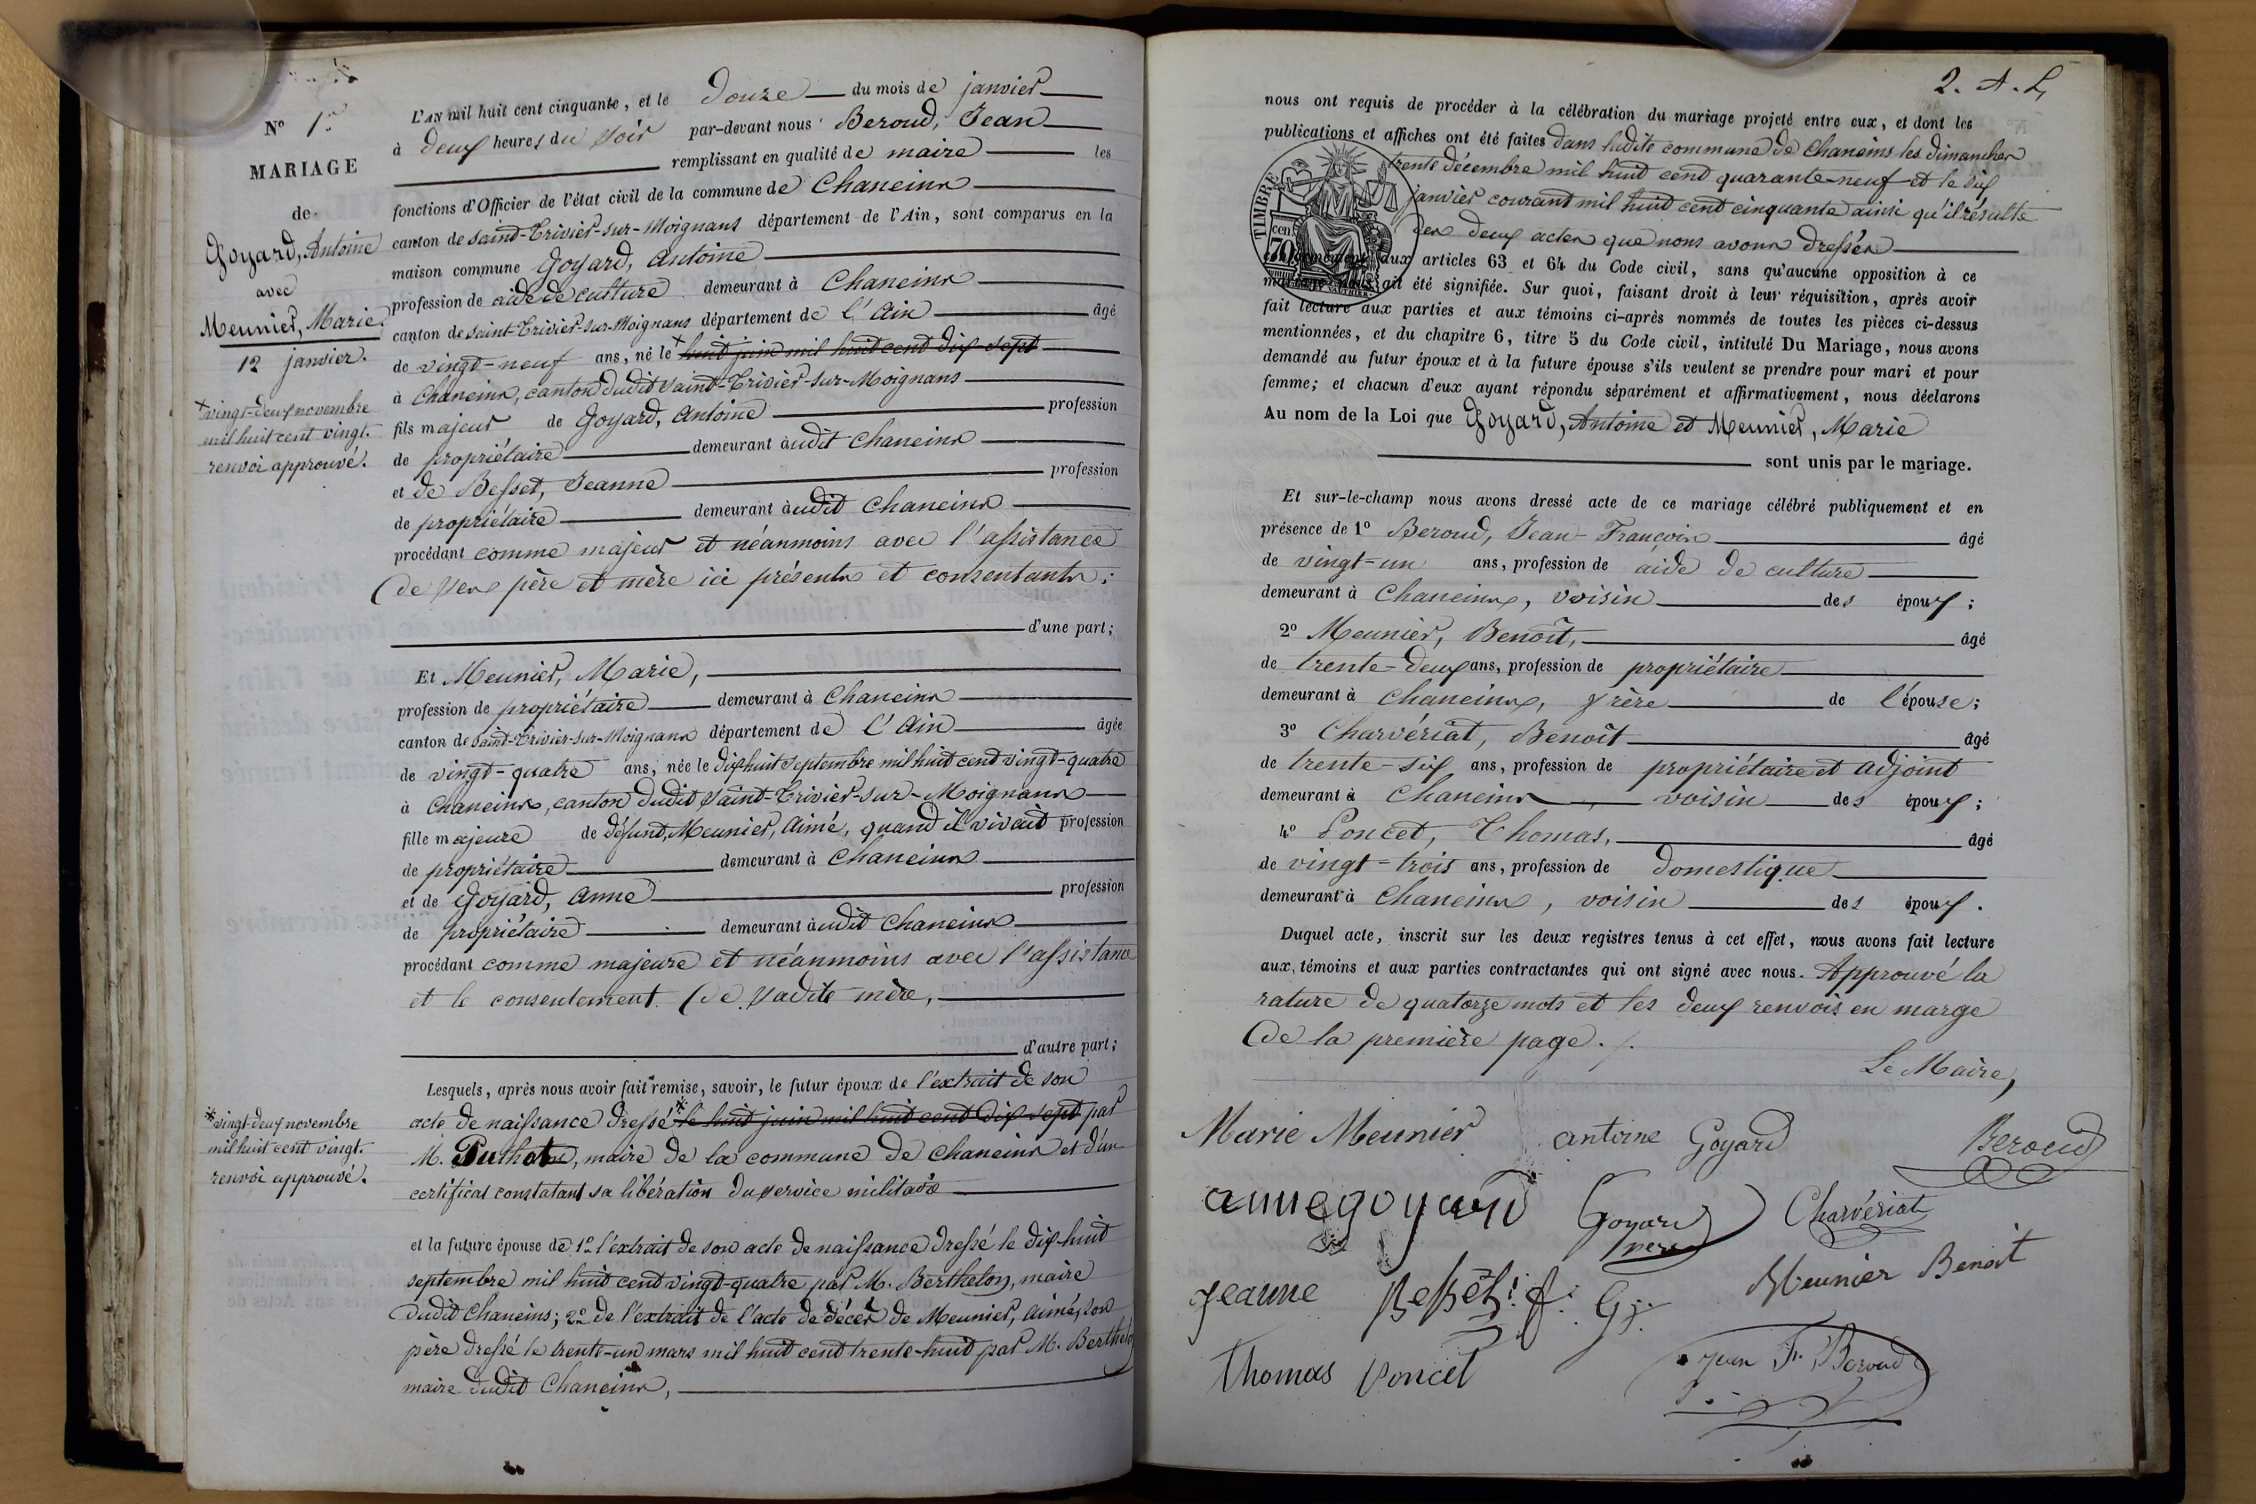 N° 1er
MARIAGE
de
Goyard, Antoine
avec
Meunier, Marie.
12 janvier.
+ vingt-deux novembre
mil huit cent vingt.
renvoi approuvé.
L'AN mil huit cent cinquante, et le douze du mois de janvier
à deux heures du soir par-devant nous Beroud, Jean
remplissant en qualité de maire les
fonctions d'Officier de l'état civil de la commune de Chaneins
canton de saint-Trivier-sur-Moignans département de l'Ain, sont comparus en la
maison commune Goyard, Antoine
profession de aide de culture demeurant à Chaneins
canton de saint-Trivier-sur-Moignans département de l'Ain âgé
de vingt-neuf ans, né le + huit juin mil huit cent dix sept
à Chaneins, canton dudit saint-Trivier-sur-Moignans
fils majeur de Goyard, Antoine profession
de propriétaire demeurant audit Chaneins
et de Besset, Jeanne profession
de propriétaire demeurant audit Chaneins
procédant comme majeur et néanmoins avec l'assistance
de ses père et mère ici présents et consentants;
d'une part;
Et Meunier, Marie,
profession de propriétaire demeurant à Chaneins
canton de saint-Trivier-sur-Moignans département de l'Ain âgée
de vingt-quatre ans, née le dix huit septembre mil huit cent vingt-quatre
à Chaneins, canton dudit Saint-Trivier-sur-Moignans
fille majeure de défunt, Meunier, Aimé, quand il vivait profession
de propriétaire demeurant à Chaneins
et de Goyard, Anne profession
de propriétaire demeurant audit Chaneins
procédant comme majeure et néanmoins avec l'assistance
et le consentement de sadite mère,
d'autre part;
Lesquels, après nous avoir fait remise, savoir, le futur époux de l'extrait de son
acte de naissance dressé * le huit juin mil huit cent dix sept par
M. maire de la commune de Chaneins et d'un
certificat constatant sa libération du service militaire
* vingt-deux novembre
mil huit cent vingt.
renvoi approuvé.
et la future épouse de 1° l'extrait de son acte de naissance dressé le dix-huit
septembre mil huit cent vingt-quatre par M. Berthelon, maire
dudit Chaneins; 2° de l'extrait de l'acte de décès de Meunier, Aimé, son
père dressé le trente-un mars mil huit cent trente-huit par M. Berthelon
maire dudit Chaneins,
2. A. L,
nous ont requis de procéder à la célébration du mariage projeté entre eux, et dont les
publications et affiches ont été faites dans ladite commune de Chaneins les dimanches
trente décembre mil huit cent quarante-neuf et le six
janvier courant mil huit cent cinquante ainsi qu'il résulte
des deux actes que nous avons dressés
TIMBRE
cen.
70
conformément aux articles 63 et 64 du Code civil, sans qu'aucune opposition à ce
mariage nous ait été signifiée. Sur quoi, faisant droit à leur réquisition, après avoir
fait lecture aux parties et aux témoins ci-après nommés de toutes les pièces ci-dessus
mentionnées, et du chapitre 6, titre 5 du Code civil, intitulé Du Mariage, nous avons
demandé au futur époux et à la future épouse s'ils veulent se prendre pour mari et pour
femme; et chacun d'eux ayant répondu séparément et affirmativement, nous déclarons
Au nom de la Loi que Goyard, Antoine et Meunier, Marie
sont unis par le mariage.
Et sur-le-champ nous avons dressé acte de ce mariage célébré publiquement et en
présence de 1° Beroud, Jean-François âgé
de vingt-un ans, profession de aide de culture
demeurant à Chaneins, voisin des époux;
2° Meunier, Benoît, âgé
de trente-deux ans, profession de propriétaire
demeurant à Chaneins, frère de l'épouse;
3° Charvériat, Benoît âgé
de trente-six ans, profession de propriétaire et adjoint
demeurant à Chaneins, voisin des époux;
4° Poncet, Thomas, âgé
de vingt-trois ans, profession de domestique
demeurant à Chaneins, voisin des époux.
Duquel acte, inscrit sur les deux registres tenus à cet effet, nous avons fait lecture
aux témoins et aux parties contractantes qui ont signé avec nous. Approuvé la
rature de quatorze mots et les deux renvois en marge
de la première page.
Le Maire,
Marie Meunier antoine Goyard Beroud
anne goyard Goyard père Charvériat
jeanne Besset f. G. Meunier Benoit
Thomas poncet jean F. Beroud